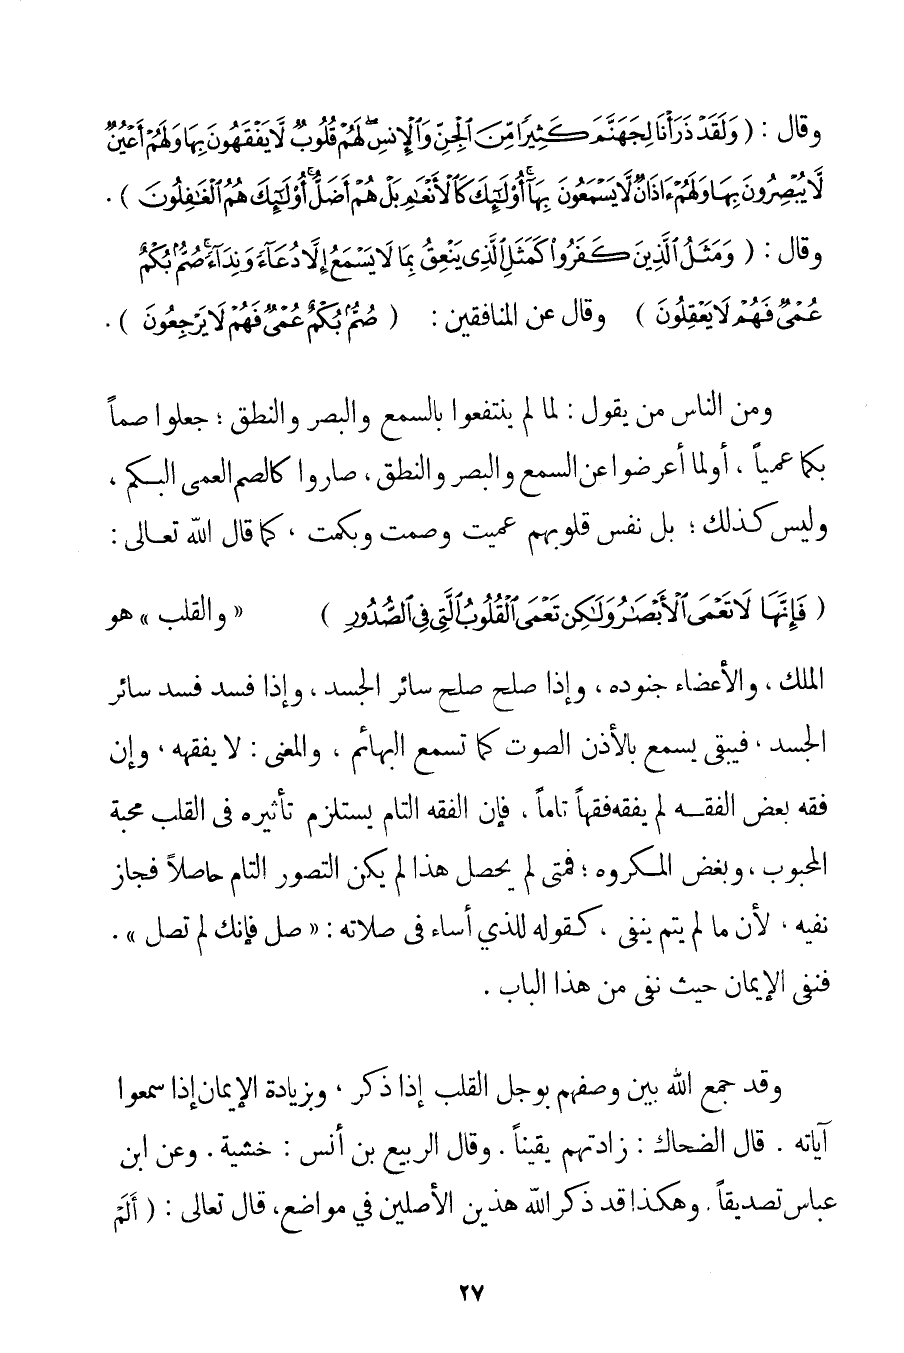 وقال : ( وَلَقَدْ ذَرَأْنَا لِجَهَنَّمَ كَثِيرًا مِّنَ ٱلْجِنِّ وَٱلْإِنسِ ۖ لَهُمْ قُلُوبٌ لَّا يَفْقَهُونَ بِهَا وَلَهُمْ أَعْيُنٌ
لَّا يُبْصِرُونَ بِهَا وَلَهُمْ ءَاذَانٌ لَّا يَسْمَعُونَ بِهَآ ۚ أُو۟لَـٰٓئِكَ كَٱلْأَنْعَـٰمِ بَلْ هُمْ أَضَلُّ ۚ أُو۟لَـٰٓئِكَ هُمُ ٱلْغَـٰفِلُونَ ) .
وقال : ( وَمَثَلُ ٱلَّذِينَ كَفَرُوا۟ كَمَثَلِ ٱلَّذِى يَنْعِقُ بِمَا لَا يَسْمَعُ إِلَّا دُعَآءً وَنِدَآءً ۚ صُمٌّۢ بُكْمٌ
عُمْىٌ فَهُمْ لَا يَعْقِلُونَ ) وقال عن المنافقين : ( صُمٌّۢ بُكْمٌ عُمْىٌ فَهُمْ لَا يَرْجِعُونَ ) .
ومن الناس من يقول : لما لم ينتفعوا بالسمع والبصر والنطق ؛ جعلوا صماً
بكما عمياً ، أو لما أعرضوا عن السمع والبصر والنطق ، صاروا كالصم العمى البكم ،
وليس كذلك ؛ بل نفس قلوبهم عميت وصمت وبكمت ، كما قال الله تعالى :
( فَإِنَّهَا لَا تَعْمَى ٱلْأَبْصَـٰرُ وَلَـٰكِن تَعْمَى ٱلْقُلُوبُ ٱلَّتِى فِى ٱلصُّدُورِ ) « والقلب » هو
الملك ، والأعضاء جنوده ، وإذا صلح صلح سائر الجسد ، وإذا فسد فسد سائر
الجسد ، فيبقى يسمع بالأذن الصوت كما تسمع البهائم ، والمعنى : لا يفقهه ، وإن
فقه بعض الفقه لم يفقه فقهاً تاماً ، فإن الفقه التام يستلزم تأثيره فى القلب محبة
المحبوب ، وبغض المكروه ؛ فمتى لم يحصل هذا لم يكن التصور التام حاصلاً فجاز
نفيه ، لأن ما لم يتم ينفى ، كقوله للذي أساء فى صلاته : « صل فإنك لم تصل » .
فنفى الإيمان حيث نفى من هذا الباب .
وقد جمع الله بين وصفهم بوجل القلب إذا ذكر ، وبزيادة الإيمان إذا سمعوا
آياته . قال الضحاك : زادتهم يقيناً . وقال الربيع بن أنس : خشية . وعن ابن
عباس تصديقاً . وهكذا قد ذكر الله هذين الأصلين في مواضع ، قال تعالى : ( أَلَمْ
٢٧